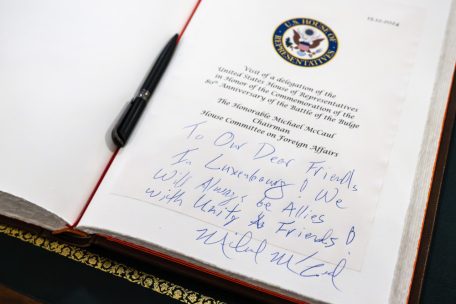 13.12.2024
U.S. HOUSE OF
REPRESENTATIVES
Visit of a delegation of the
United States House of Representatives
in Honor of the Commemoration of the
80th Anniversary of the Battle of the Bulge
The Honorable Michael McCaul
Chairman
House Committee on Foreign Affairs
To Our Dear Friends
In Luxembourg! We
Will Always be Allies
with Unity & Friends!
Michael McCaul